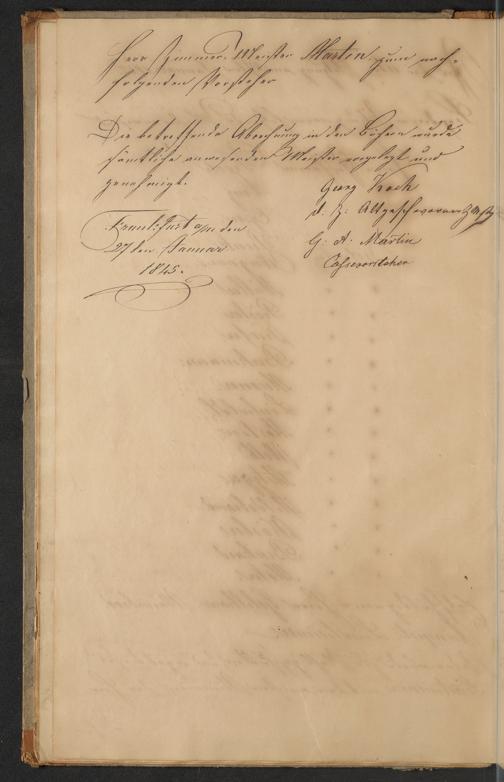 Herr Zimmer-Meister Martin zum nach-
folgenden Vorsteher
Die betreffende Abrechnung in den Büchern wurde
sämtliche anwesenden Meister vorgelegt und
genehmigt.
Frankfurt a/m den
27ten Januar
1845.
Georg Koch
d. Z. Altgeschworener
G. A. Martin
Cassevorsteher